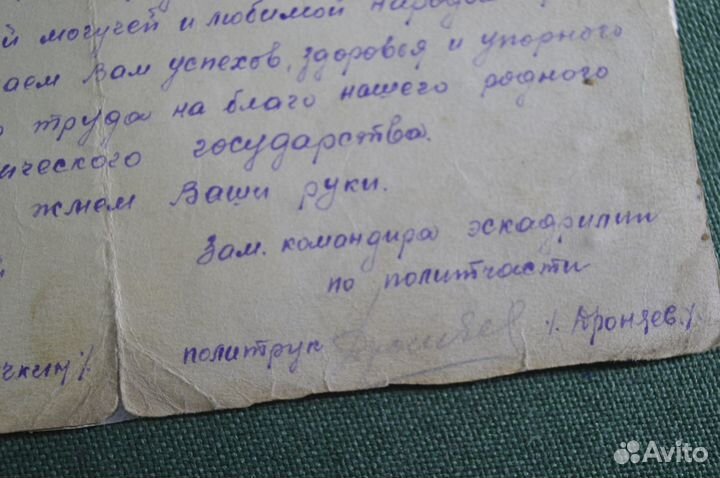 й могучей и любимой народом
аем Вам успехов, здоровья и упорного
о труда на благо нашего родного
ического государства.
жмем Ваши руки.
Зам. командира эскадрилии
по политчасти
политрук /. Дронцев./.
чкин/.
Avito